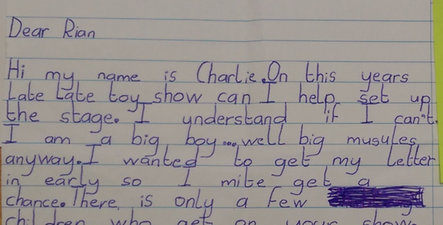 Dear Rian
Hi my name is Charlie. On this years
Late Late toy show can I help set up
the stage. I understand if I can't.
I am a big boy...well big musules
anyway. I wanted to get my letter
in early so I mite get a
chance. There is only a few
children who get on your show.